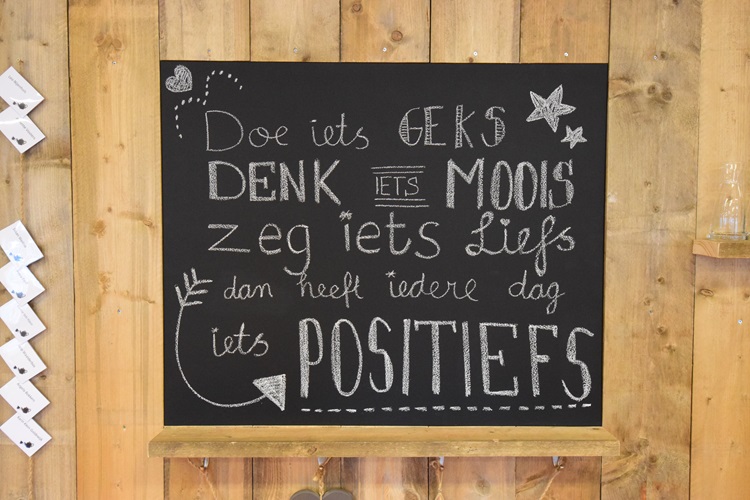 Doe iets GEKS
DENK IETS MOOIS
zeg iets Liefs
dan heeft iedere dag
iets POSITIEFS